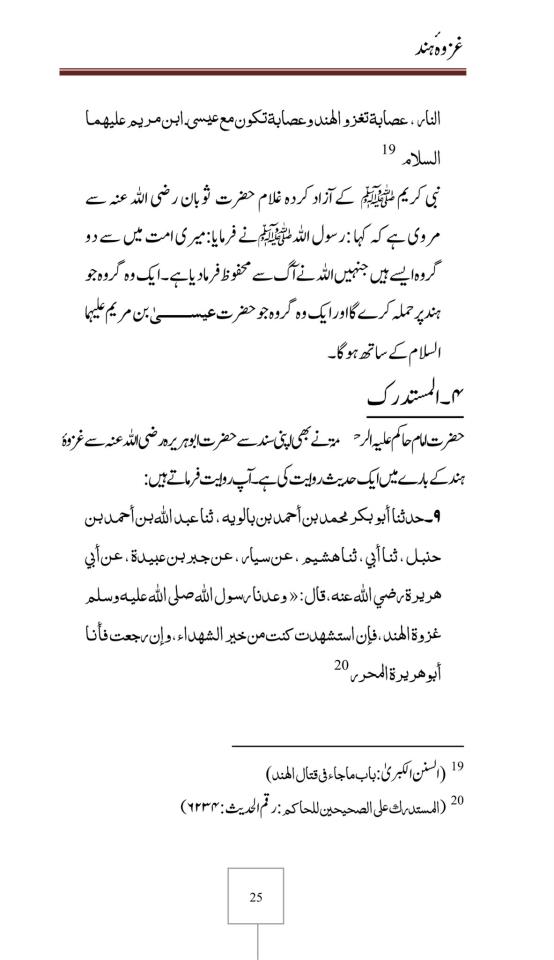 غزوۂ ہند
النار ، عصابة تغزو الهند وعصابة تكون مع عيسى ابن مريم عليهما
السلام 19
نبی کریم ﷺ کے آزاد کردہ غلام حضرت ثوبان رضی اللہ عنہ سے
مروی ہے کہ کہا : رسول اللہ ﷺ نے فرمایا : میری امت میں سے دو
گروہ ایسے ہیں جنہیں اللہ نے آگ سے محفوظ فرمادیا ہے۔ ایک وہ گروہ جو
ہند پر حملہ کرے گا اور ایک وہ گروہ جو حضرت عیسیٰ بن مریم علیہا
السلام کے ساتھ ہو گا۔
۴۔ المستدرک
حضرت امام حاکم علیہ الرحمۃ نے بھی اپنی سند سے حضرت ابو ہریرہ رضی اللہ عنہ سے غزوۂ
ہند کے بارے میں ایک حدیث روایت کی ہے۔ آپ روایت فرماتے ہیں:
۹۔ حدثنا أبو بكر محمد بن أحمد بن بالويه ، ثنا عبد الله بن أحمد بن
حنبل ، ثنا أبي ، ثنا هشيم ، عن سيار ، عن جبر بن عبيدة ، عن أبي
هريرة رضي الله عنه، قال : « وعدنا رسول الله صلى الله عليه وسلم
غزوة الهند، فإن استشهدت كنت من خير الشهداء ، وإن رجعت فأنا
أبو هريرة المحرر 20
19 (السنن الکبریٰ: باب ما جاء فی قتال الہند)
20 (المستدرك على الصحيحين للحاكم : رقم الحدیث : ۶۲۳۴)
25